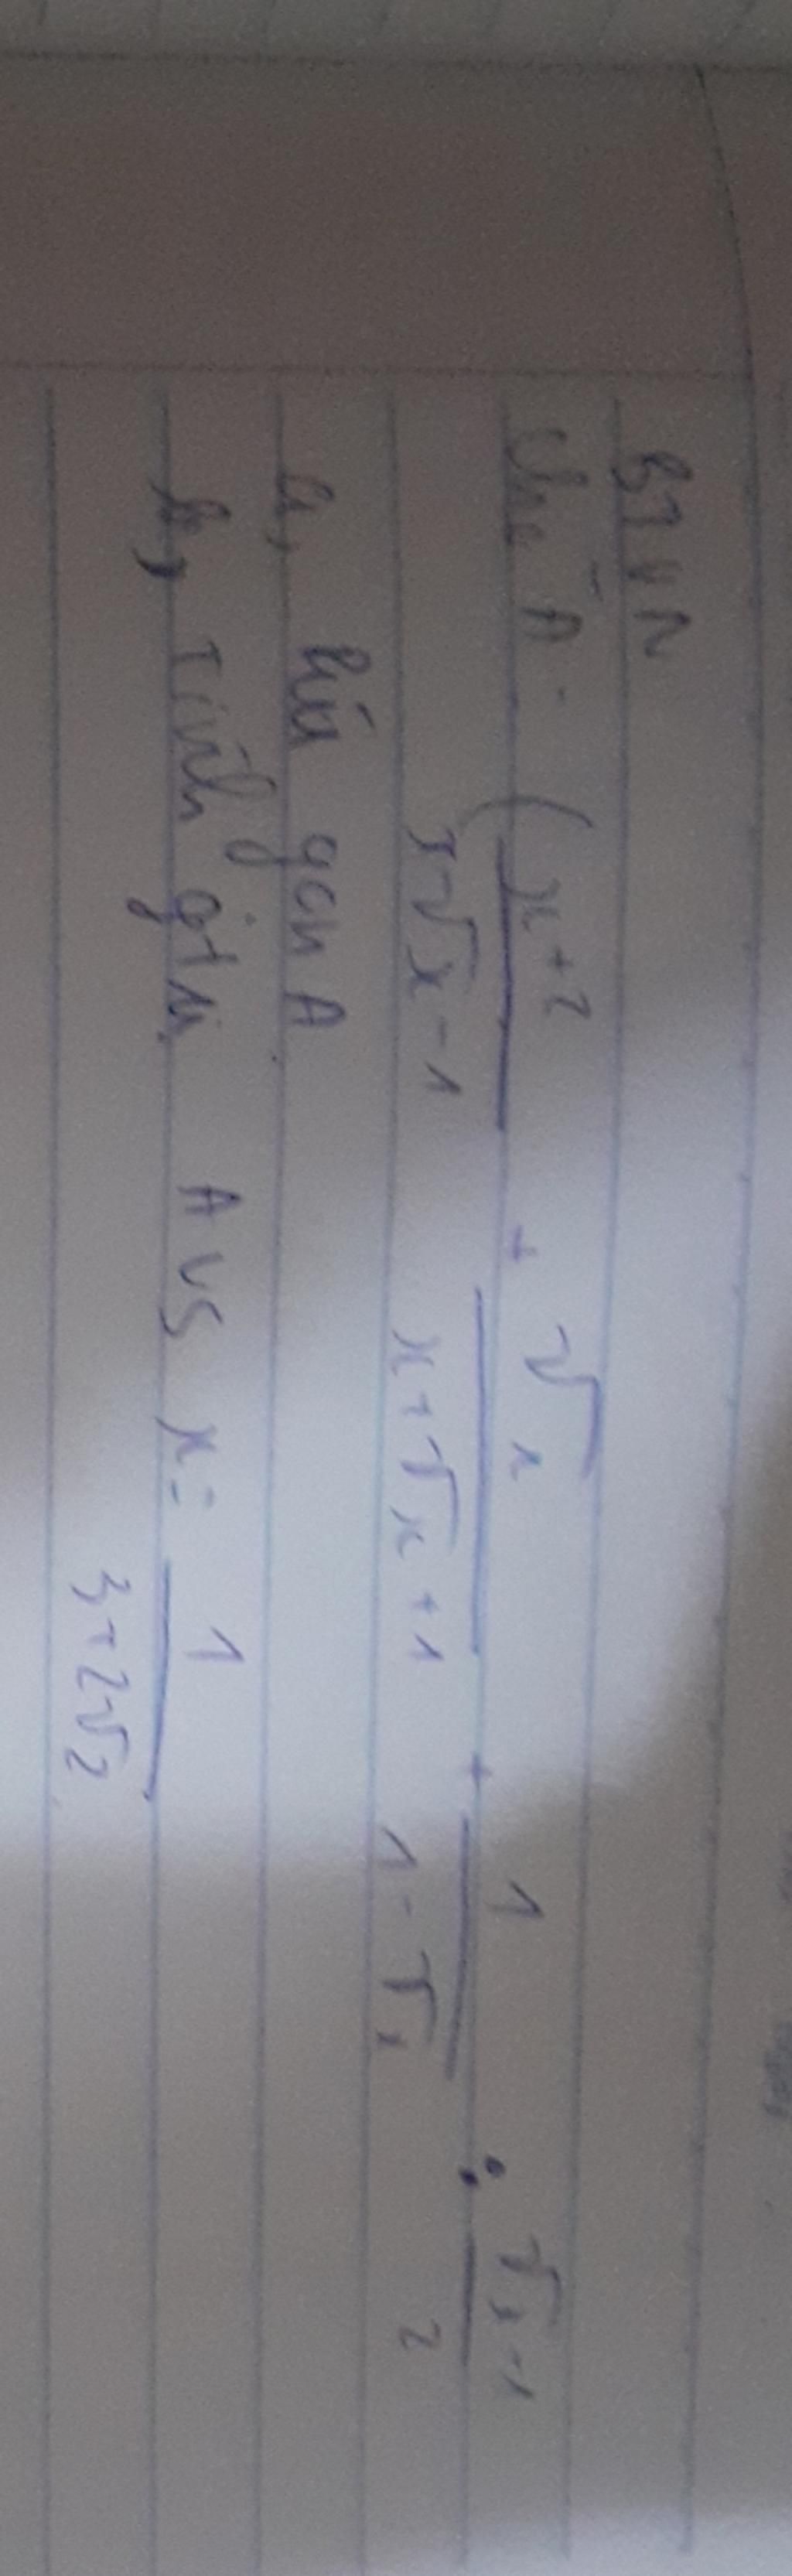 BTVN
Cho A = ( x+2 / x√x - 1 + √x / x+√x+1 + 1 / 1-√x : √x-1 / 2
a, Rú gọn A
b, Tính gtrị A vs x = 1 / 3+2√2